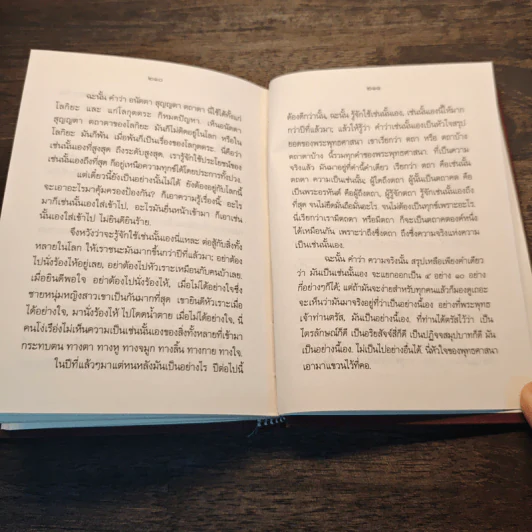 ๒๑๐
ฉะนั้น คำว่า อนัตตา สุญญตา ตถาตา นี้ใช้ได้ทั้งแก่
โลกิยะ และ แก่โลกุตตระ ก็หมดปัญหา เห็นอนัตตา
สุญญตา ตถาตาของโลกิยะ มันก็ไม่ติดอยู่ในโลก หรือใน
โลกิยะ มันก็พ้น เมื่อพ้นก็เป็นเรื่องของโลกุตตระ นี่คือว่า
เช่นนั้นเองที่สูงสุด ถึงระดับสูงสุด เรารู้จักใช้ประโยชน์ของ
เช่นนั้นเองถึงที่สุด ก็อยู่เหนือความทุกข์ได้โดยประการทั้งปวง.
แต่เดี๋ยวนี้ยังเป็นอย่างนั้นไม่ได้ ยังต้องอยู่กับโลกนี้
จะเอาอะไรมาคุ้มครองป้องกัน? ก็เอาความรู้เรื่องนี้: อะไร
มาก็เช่นนั้นเองใส่เข้าไป. อะไรมายื่นหน้าเข้ามา ก็เอาเช่น
นั้นเองใส่เข้าไป ไม่ยินดียินร้าย.
จึงหวังว่าจะรู้จักใช้เช่นนั้นเองนี่แหละ ต่อสู้กับสิ่งทั้ง
หลายในโลก ให้เราชนะมันมากขึ้นกว่าปีที่แล้วมา; อย่าต้อง
ไปนั่งร้องไห้อยู่เลย, อย่าต้องไปหัวเราะเหมือนกับคนบ้าเลย.
เมื่อยินดีพอใจ อย่าต้องไปนั่งร้องไห้, เมื่อไม่ได้อย่างใจซึ่ง
ชายหนุ่มหญิงสาวเขาเป็นกันมากที่สุด เขายินดีหัวเราะเมื่อ
ได้อย่างใจ, มานั่งร้องไห้ ไปโดดน้ำตาย เมื่อไม่ได้อย่างใจ, นี่
คนโง่เรื่องไม่เห็นความเป็นเช่นนั้นเองของสิ่งทั้งหลายที่เข้ามา
กระทบตน ทางตา ทางหู ทางจมูก ทางลิ้น ทางกาย ทางใจ.
ในปีที่แล้วๆมาแต่หนหลังมันเป็นอย่างไร ปีต่อไปนี้
๒๑๑
ต้องดีกว่านั้น, ฉะนั้น รู้จักใช้เช่นนั้นเอง, เช่นนั้นเองนี้ให้มาก
กว่าปีที่แล้วมา; แล้วให้รู้ว่า คำว่าเช่นนั้นเองเป็นหัวใจสรุป
ยอดของพระพุทธศาสนา เขาเรียกว่า ตถา หรือ ตถาบ้าง
ตถาตาบ้าง นี้รวมทุกคำของพระพุทธศาสนา ที่เป็นความ
จริงแล้ว มันมาอยู่ที่คำนี้คำเดียว เรียกว่า ตถา คือเช่นนั้น,
ตถตา ความเป็นเช่นนั้น; ผู้ใดถึงตถา ผู้นั้นเป็นตถาคต คือ
เป็นพระอรหันต์ คือผู้ถึงตถา, ผู้รู้จักตถา รู้จักเช่นนั้นเองถึง
ที่สุด จนไม่ยึดมั่นถือมั่นอะไร จนไม่ต้องเป็นทุกข์เพราะอะไร:
นี่เรียกว่าเรามีตถตา หรือมีตถา ก็จะเป็นตถาคตองค์หนึ่ง
ได้เหมือนกัน เพราะว่าถึงซึ่งตถา ถึงซึ่งความจริงแห่งความ
เป็นเช่นนั้นเอง.
ฉะนั้น คำว่า ความจริงนั้น สรุปเหลือเพียงคำเดียว
ว่า มันเป็นเช่นนั้นเอง จะแยกออกเป็น ๕ อย่าง ๑๐ อย่าง
กี่อย่างๆก็ได้; แต่ถ้ามันจะง่ายสำหรับทุกคนแล้วก็มองดูเถอะ
จะเห็นว่ามันจริงอยู่ที่ว่าเป็นอย่างนี้เอง อย่างที่พระพุทธ
เจ้าท่านตรัส, มันเป็นอย่างนี้เอง. ที่ท่านได้ตรัสไว้ว่า เป็น
ไตรลักษณ์ก็ดี เป็นอริยสัจจ์สี่ก็ดี เป็นปฏิจจสมุปบาทก็ดี มัน
เป็นอย่างนี้เอง. ไม่เป็นไปอย่างอื่นได้. นี่หัวใจของพุทธศาสนา
เอามาแขวนไว้ที่คอ.